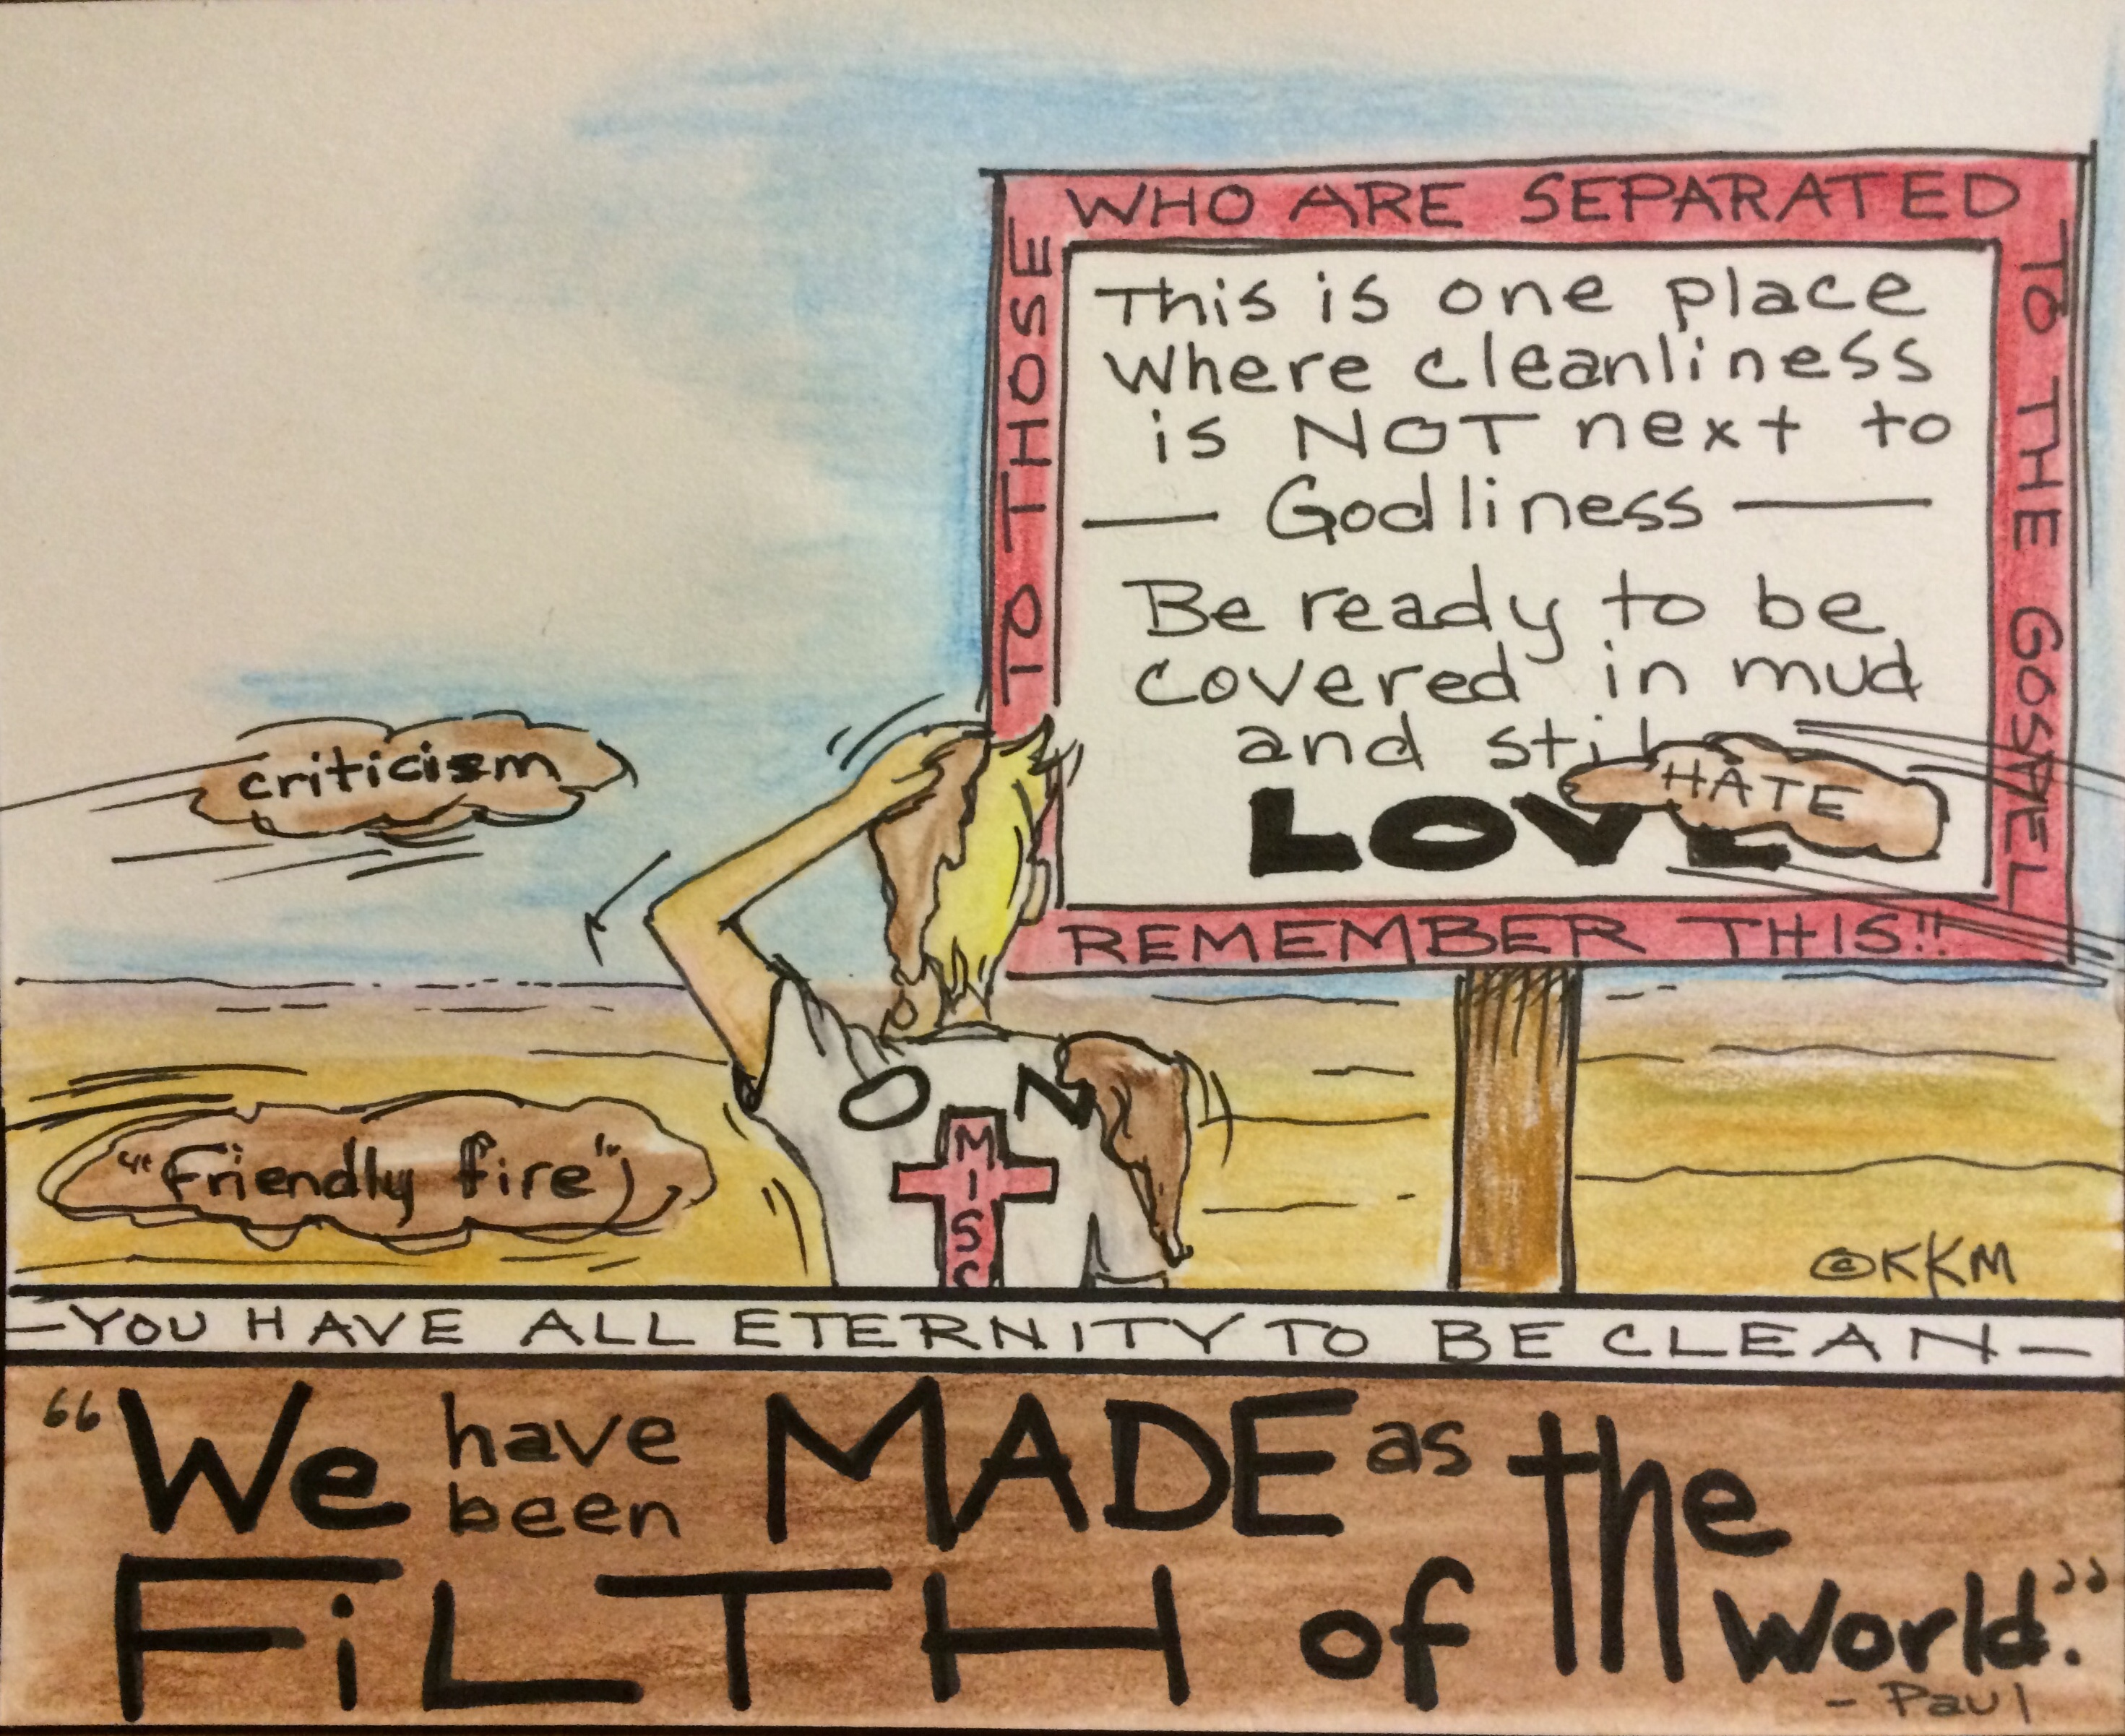 TO THOSE
WHO ARE SEPARATED
TO THE GOSPEL
REMEMBER THIS!!
This is one place
where cleanliness
is NOT next to
— Godliness —
Be ready to be
covered in mud
and stil
LOVE
HATE
criticism
"Friendly fire"
ON
MISC
©KKM
—YOU HAVE ALL ETERNITY TO BE CLEAN—
"We have been MADE as the
FiLTH of world."
- Paul